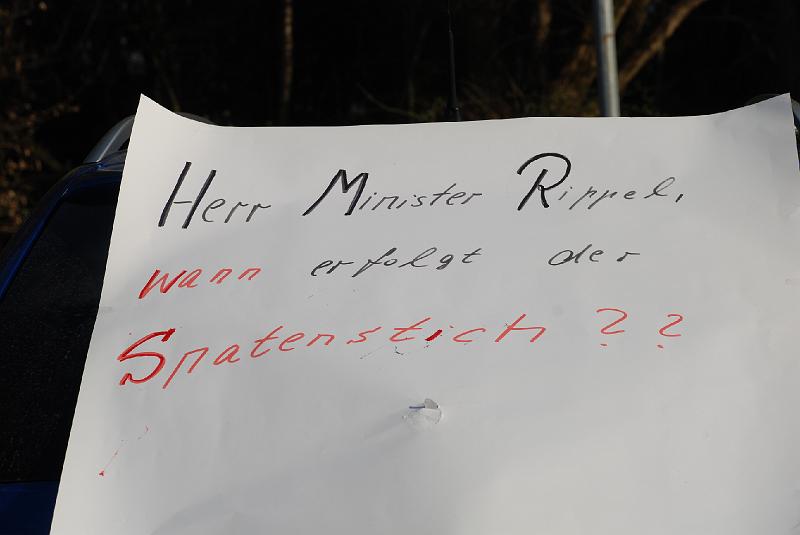 Herr Minister Rippel,
wann erfolgt der
Spatenstich ??